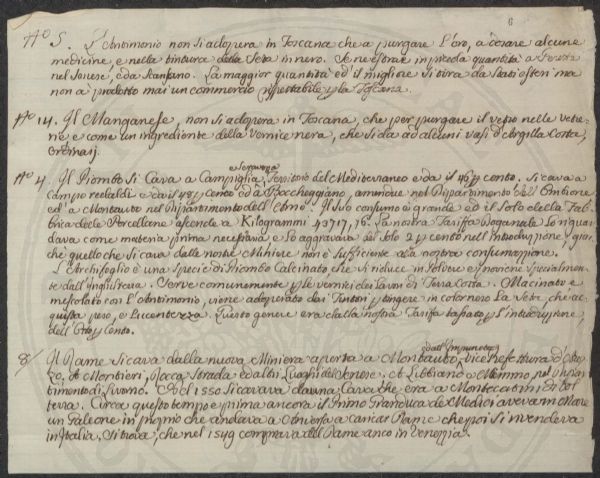 6
No 5. L'Antimonio non si adopera in Toscana che a purgare l'oro, a dosare alcune
medicine, e nella tintura della Seta in nero. Se ne estrae in piccola quantità a Pereta
nel Senese, e da Scansano. La maggior quantità ed il migliore si tira da Stati esteri ma
non à prodotto mai un commercio rispettabile p la Toscana.
No 14. Il Manganese, non si adopera in Toscana, che per purgare il vetro nelle vetre-
rie e come un ingrediente della Vernice nera, che si da ad alcuni vasi d'Argilla Cotta,
ordinarj.
No 4. Il Piombo si Cava a Campiglia, e Seravezza Territorio del Mediterraneo e da il 46 p cento. Si cava a
Campo reobaldi e da il 48 p cento ed a Boccheggiano, amendue nel Dipartimento dell'Ombrone
ed a Montauto nel Dipartimento dell'Arno. Il suo consumo è grande ed il Solo della Fab-
brica delle Porcellane ascende a Kilogrammi 43717,76. La nostra Tariffa Doganale lo riguar-
dava come materia prima necessaria e lo aggravava del Solo 2 p cento nell'introduzione giac-
chè quello che si cava dalle nostre Miniere non è sufficiente alla nostra consumazione.
L'Archifoglio è una Specie di Piombo Calcinato che si riduce in Polvere e proviene specialmen-
te dall'Inghilterra. Serve comunemente p le vernici dei lavori di Terra Cotta. Macinato e
mescolato con l'Antimonio, viene adoperato dai Tintori p tingere in color nero la Seta, che ac-
quista peso, e Lucentezza. Questo genere era dalla nostra Tariffa tassato p l'introduzione
dell'Otto p Cento.
8/ Il Rame si cava dalla nuova Miniera aperta a Montauto, dall'Impruneta, Vice Prefettura d'Arez-
zo, A Montieri, Rocca Strada ed altri Luoghi del Senese. A Libbiano e Memmo nel Dipar-
timento di Livorno. Nel 1550 si cavava da una Cava che era a Montecatini di Vol-
terra. Circa questo tempo e prima ancora il Primo Granduca de Medici aveva in Mare
un Galeone in proprio che andava a Anversa a caricar Rame che poi si rivendeva
in Italia. Si trova, che nel 1549 comprava del Rame anco in Venezia.